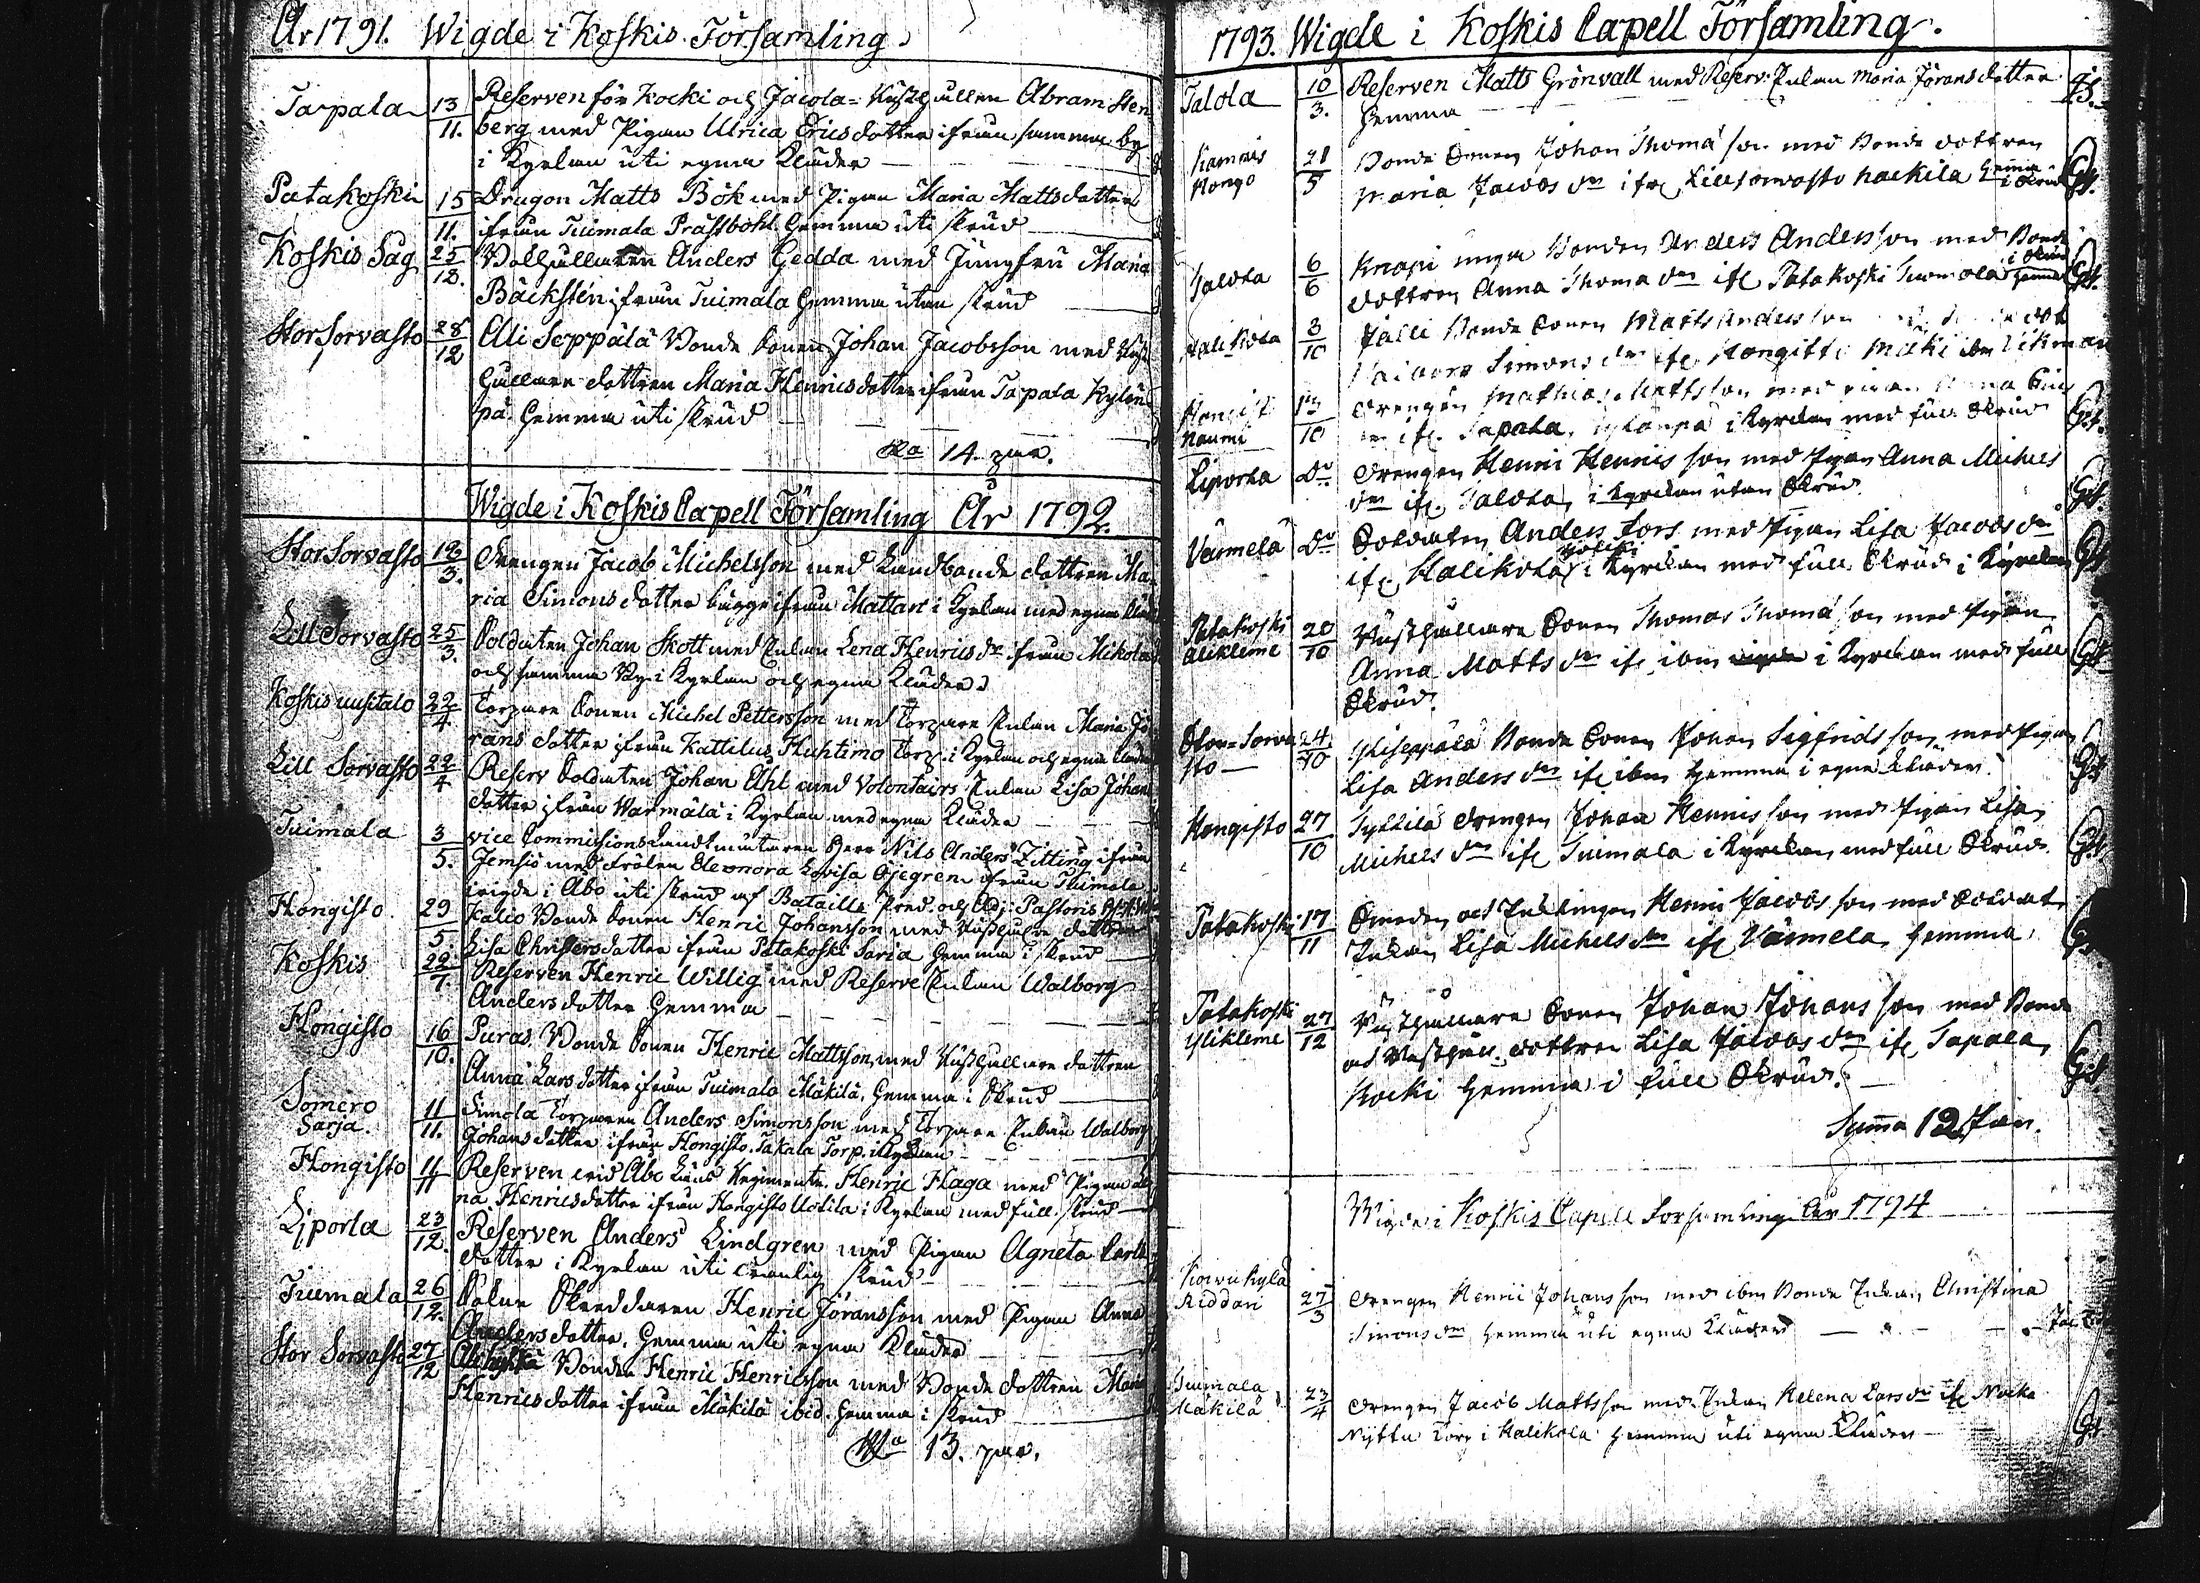 År 1791. Wigde i Koskis Församling.
Tapala 13/11. Reserven för Kocki och Jacola- Rusthållen Abram Sten
berg med Pigan Ulrica Ericsdotter ifrån samma by
i Kyrkan uti egna Kläder
Patakoski 15/11. Dragon Matts Bök med Pigan Maria Mattsdotter
ifrån Tuimala Prästbohl. hemma uti skrud
Koskis Såg 25/12. Anders Gedda med Jungfru Maria
Bäckstén ifrån Tuimala hemma utan skrud
Stor Sorvasto 28/12 Ali Seppälä Bonde Sonen Johan Jacobsson med Rust
hållare dottren Maria Henricsdotter ifrån Tapala Kylän
pä hemma uti skrud
Sa 14. par.
Wigde i Koskis Capell Församling År 1792.
Stor Sorvasto 12/3. Drengen Jacob Michelsson med Landbonde dottren Ma
ria Simonsdotter begge ifrån Mattari i Kyrkan med egna Kläd
Lill Sorvasto 25/3. Soldaten Johan Skott med Enkan Lena Henrics dr ifrån Mikola
och samma By i Kyrkan och egna Kläder
Koskis uusitalo 22/4 Torpare Sonen Michel Pettersson med Torpare Enkan Maria Jö
rans dotter ifrån Kattelus Huhtimo Torp i Kyrkan och egna Kläder
Lill Sorvasto 22/4 Reserv Soldaten Johan Ahl med Volontairs Enkan Lisa Johans
dotter ifrån Warmälä i Kyrkan med egna Kläder
Tuimala 3/5. vice Commissions Landtmätaren Herr Nils Anders Zitting ifrån
Jemsiö med Frölen Eleonora Lovisa Öjegren ifrån Tuimala
wigde i Åbo uti skrud af Bataills Pred. och Adj: Pastoris
Hongisto. 29/5. Kalio Bonde Sonen Henric Johansson med Rusthållare dottren
Lisa Christersdotter ifrån Patakoski Saria hemma i skrud
Koskis 22/7. Reserven Henric Willig med Reserve Enkan Walborg
Andersdotter hemma
Hongisto 16/10. Puras Bonde Sonen Henric Mattsson med Rusthållare dottren
Anna Larsdotter ifrån Tuimala Mäkilä, hemma i Skrud
Somero Sarja. 11/11. Simola Torparen Anders Simonsson med Torpare Enkan Walborg
Johansdotter ifrån Hongisto Takala Torp. i Kyrkan
Hongisto 11/11 Reserven vid Åbo Läns Regimente. Henric Haga med Pigan
na Henricsdotter ifrån Hongisto Uotila i Kyrkan med full skrud
Liporla 23/12. Reserven Anders Lindgren med Pigan Agneta Carls
dotter i Kyrkan uti vanlig skrud
Tuimala 26/12. Skreddaren Henric Jöransson med Pigan Anna
Andersdotter. hemma uti egna Kläder
Stor Sorvasto 27/12 Bonden Henric Henricsson med Bonde dottren Maria
Henricsdotter ifrån Mäkilä ibid. hemma i skrud
Sa 13. par.
1793. Wigde i Koskis Capell Församling.
Talola 10/3. Reserven Matts Grönvall med Reserv: Enkan Maria Jöransdotter
hemma
21/5 Bonde Sonen Johan Thomæ son med Bonde dottren
Maria Jacobs dr ifr Lillsorvasto hackila hemma i skrud Gst.
Talola 6/6 Knapi unga Bonden Anders Andersson med Bonde
dottren Anna Thomæ dr ifr Patakoski Tuomola hemma i skrud Gst.
Halikola 3/10 Jälli Bonde Sonen Matts Andersson
Simons dr ifr Hongisto Mäki
13/10 Drengen Mathias Mattsson med pigan
ifr. Tapala, i Kyrkan med full Skrud Gst.
Liporla Do Drengen Henric Henricsson med Pigan Anna Michels
dr ifr. Talola, i Kyrkan utan Skrud. Gst.
Värmelä Do Soldaten Anders Fors med Pigan Lisa Jacobs dr
ifr Halikola i Kyrkan med full Skrud i Kyrkan Gst
Patakoski Alikleme 20/10 Rusthållare Sonen Thomas Thomæ son med Pigan
Anna Matts dr ifr ibm i Kyrkan med full Gst
Skrud.
Stor=Sorva sto 24/10 Yliseppälä Bonde Sonen Johan Sigfrids son med Pigan
Lisa Anders dr ifr ibm hemma i egna Kläder. Gst
Hongisto 27/10 Tykkilä drengen Johan Henrics son med Pigan Lisa
Michels dr ifr Tuimala i Kyrkan med full Skrud. Gst
Patakoski 17/11 Smeden och Enklingen Henric Jacobs son med Soldats
Enkan Lisa Michels dr ifr Värmelä hemma
Patakoski Ylikleme 27/12 Rusthållare Sonen Johan Johans son med Bonde
och Rusthåll. dottren Lisa Jacobs dr ifr Tapala,
Kocki hemma i full Skrud. Gst
Summa 12 Par.
Wigde i Koskis Capell Församling År 1794
27/3 Drengen Henric Johans son med ibm Bonde Enkan Christina
Simons dr hemma uti egna Kläder
Tuimala Mäkilä 23/4 Drengen Jacob Mattsson med Enkan Helena Lars dr ifr
Torp i Halikola hemma uti egna Kläder Gst